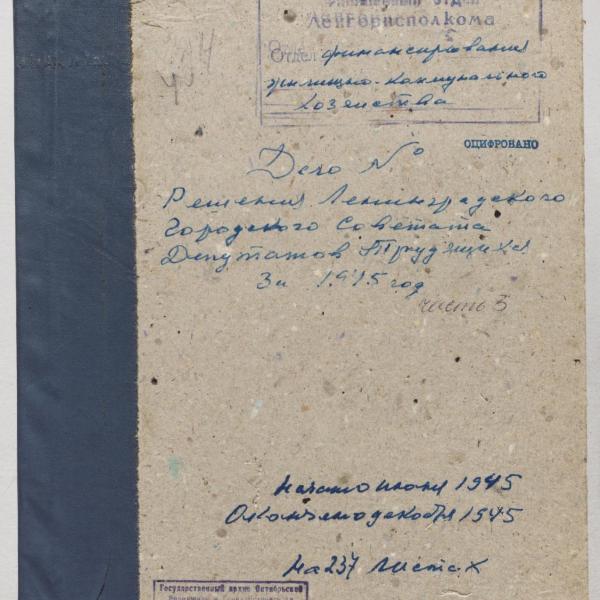 Финансовый отдел
Ленгорисполкома
Отдел финансирования
жилищно-коммунального
хозяйства
ОЦИФРОВАНО
Дело №
Решения Ленинградского
Городского Совета
Депутатов Трудящихся
За 1945 год
часть 5
Начато июня 1945
Окончено декабря 1945
На 237 листах
Государственный архив Октябрьской